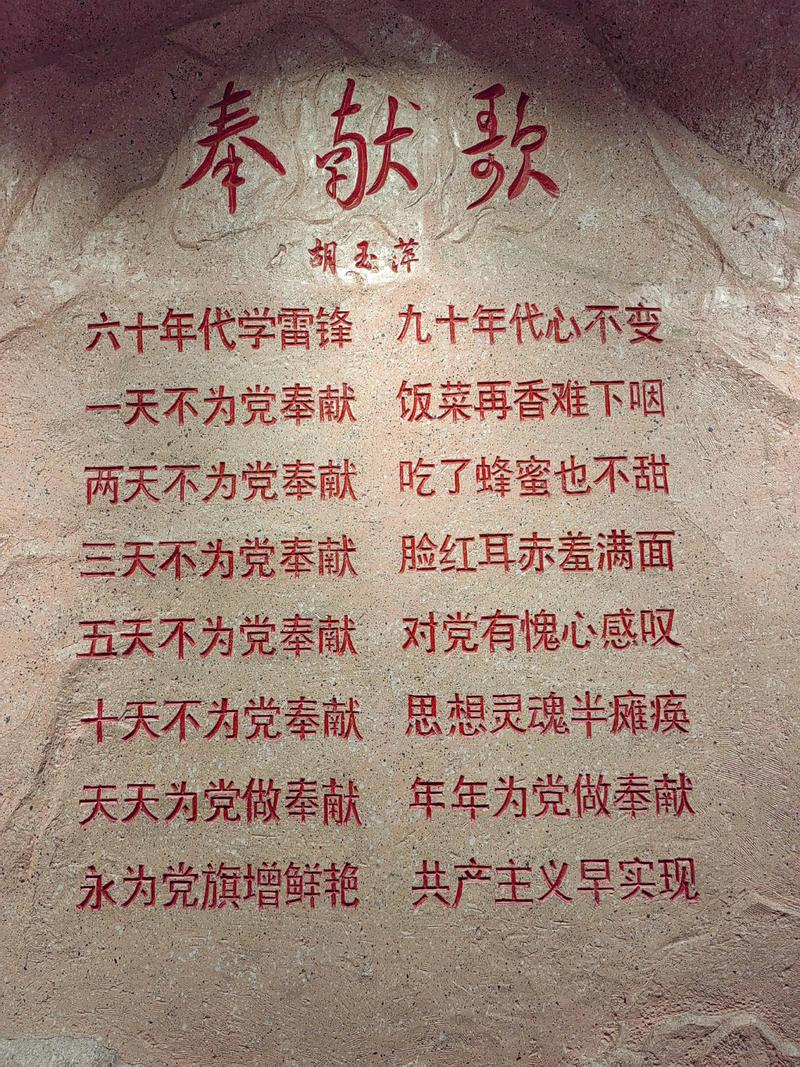 奉献歌
胡玉萍
六十年代学雷锋 九十年代心不变
一天不为党奉献 饭菜再香难下咽
两天不为党奉献 吃了蜂蜜也不甜
三天不为党奉献 脸红耳赤羞满面
五天不为党奉献 对党有愧心感叹
十天不为党奉献 思想灵魂半瘫痪
天天为党做奉献 年年为党做奉献
永为党旗增鲜艳 共产主义早实现